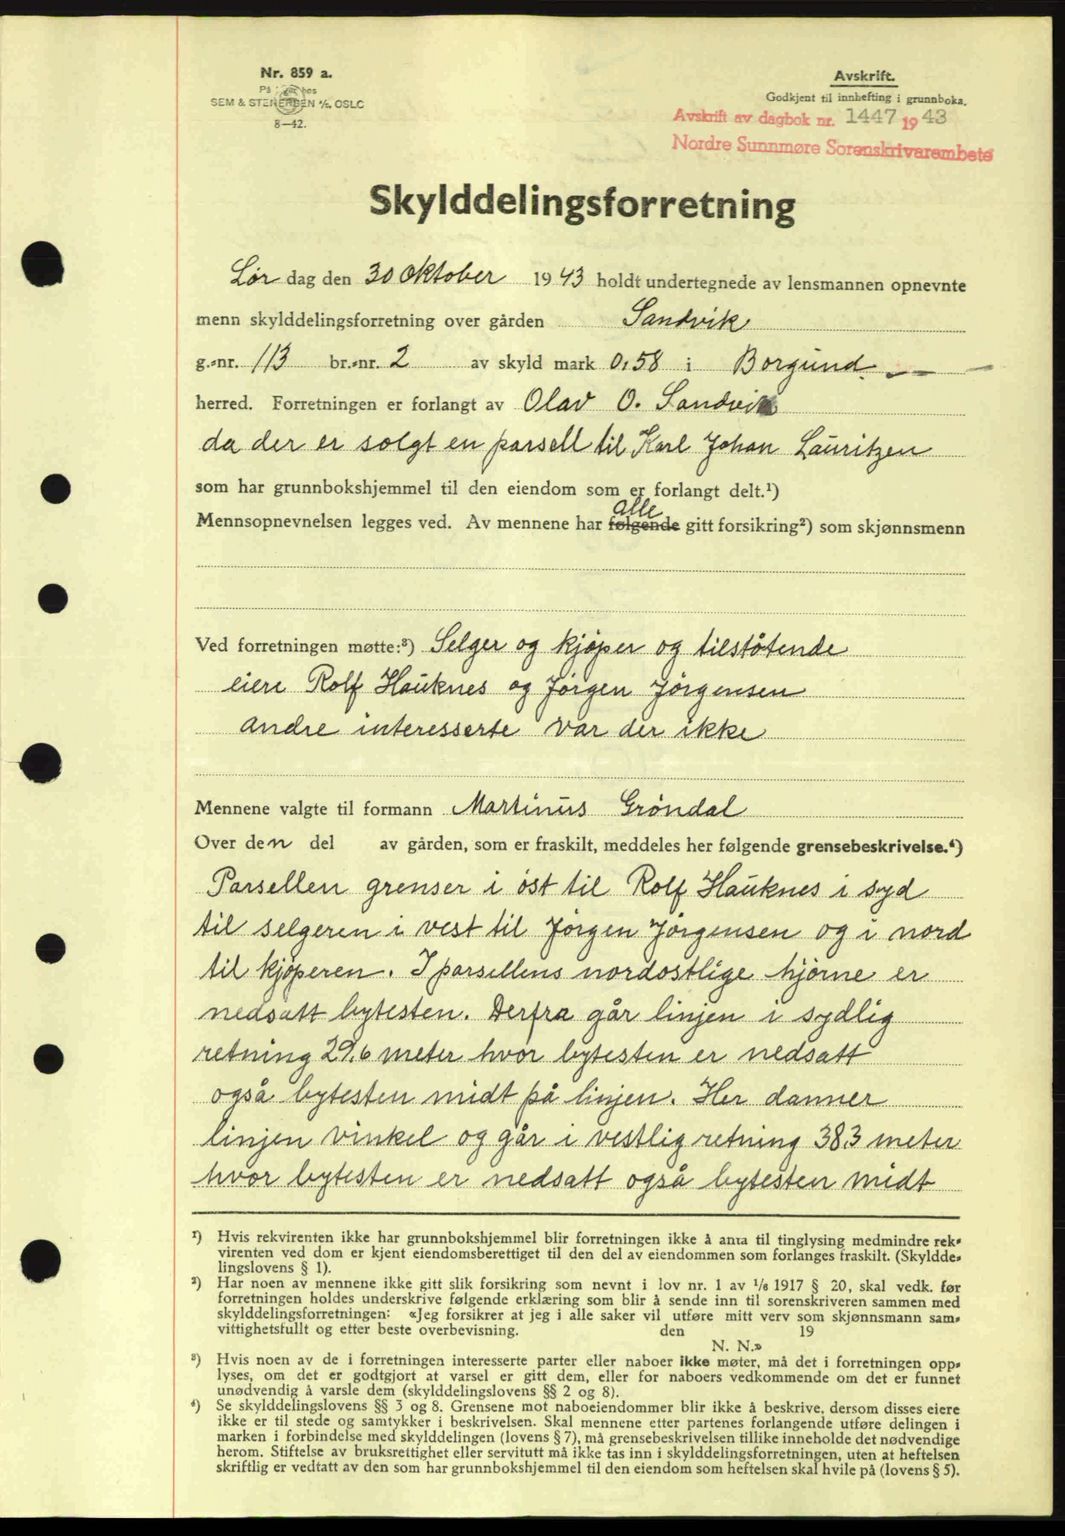 Nr. 859 a.
SEM & STENERSEN A/S, OSLO
8—42.
Avskrift.
Godkjent til innhefting i grunnboka.
Avskrift av dagbok nr. 1447 1943
Nordre Sunnmøre Sorenskrivarembete
Skylddelingsforretning
Lør dag den 30 oktober 1943 holdt undertegnede av lensmannen opnevnte
menn skylddelingsforretning over gården Sandvik
g.-nr. 113 br.-nr. 2 av skyld mark 0,58 i Borgund
herred. Forretningen er forlangt av Olav O. Sandvik
da der er solgt en parsell til Karl Johan Lauritzen
som har grunnbokshjemmel til den eiendom som er forlangt delt.¹)
alle
Mennsopnevnelsen legges ved. Av mennene har følgende gitt forsikring²) som skjønnsmenn
Ved forretningen møtte:³) Selger og kjøper og tilstøtende
eiere Rolf Hauknes og Jørgen Jørgensen
andre interesserte var der ikke
Mennene valgte til formann Martinus Grøndal
Over den del av gården, som er fraskilt, meddeles her følgende grensebeskrivelse.⁴)
Parsellen grenser i øst til Rolf Hauknes i syd
til selgeren i vest til Jørgen Jørgensen og i nord
til kjøperen. I parsellens nordostlige hjørne er
nedsatt bytesten. Derfra går linjen i sydlig
retning 29,6 meter hvor bytesten er nedsatt
også bytesten midt på linjen. Her danner
linjen vinkel og går i vestlig retning 38,3 meter
hvor bytesten er nedsatt også bytesten midt
¹) Hvis rekvirenten ikke har grunnbokshjemmel blir forretningen ikke å anta til tinglysing medmindre rek-
virenten ved dom er kjent eiendomsberettiget til den del av eiendommen som forlanges fraskilt. (Skyldde-
lingslovens § 1).
²) Har noen av mennene ikke gitt slik forsikring som nevnt i lov nr. 1 av 1/6 1917 § 20, skal vedk. før
forretningen holdes underskrive følgende erklæring som blir å sende inn til sorenskriveren sammen med
skylddelingsforretningen: «Jeg forsikrer at jeg i alle saker vil utføre mitt verv som skjønnsmann sam-
vittighetsfullt og etter beste overbevisning. den 19
N. N.»
³) Hvis noen av de i forretningen interesserte parter eller naboer ikke møter, må det i forretningen opp-
lyses, om det er godtgjort at varsel er gitt dem, eller for naboers vedkommende om det er funnet
unødvendig å varsle dem (skylddelingslovens §§ 2 og 8).
⁴) Se skylddelingslovens §§ 3 og 8. Grensene mot naboeiendommer blir ikke å beskrive, dersom disses eiere
ikke er til stede og samtykker i beskrivelsen. Skal mennene etter partenes forlangende utføre delingen i
marken i forbindelse med skylddelingen (lovens § 7), må grensebeskrivelsen tillike inneholde det nødvendige
herom. Stiftelse av bruksrettighet eller servitutt må ikke tas inn i skylddelingsforretningen, uten at heftelsen
skriftlig er vedtatt av den som har grunnbokshjemmel til den eiendom som heftelsen skal hvile på (lovens § 5).